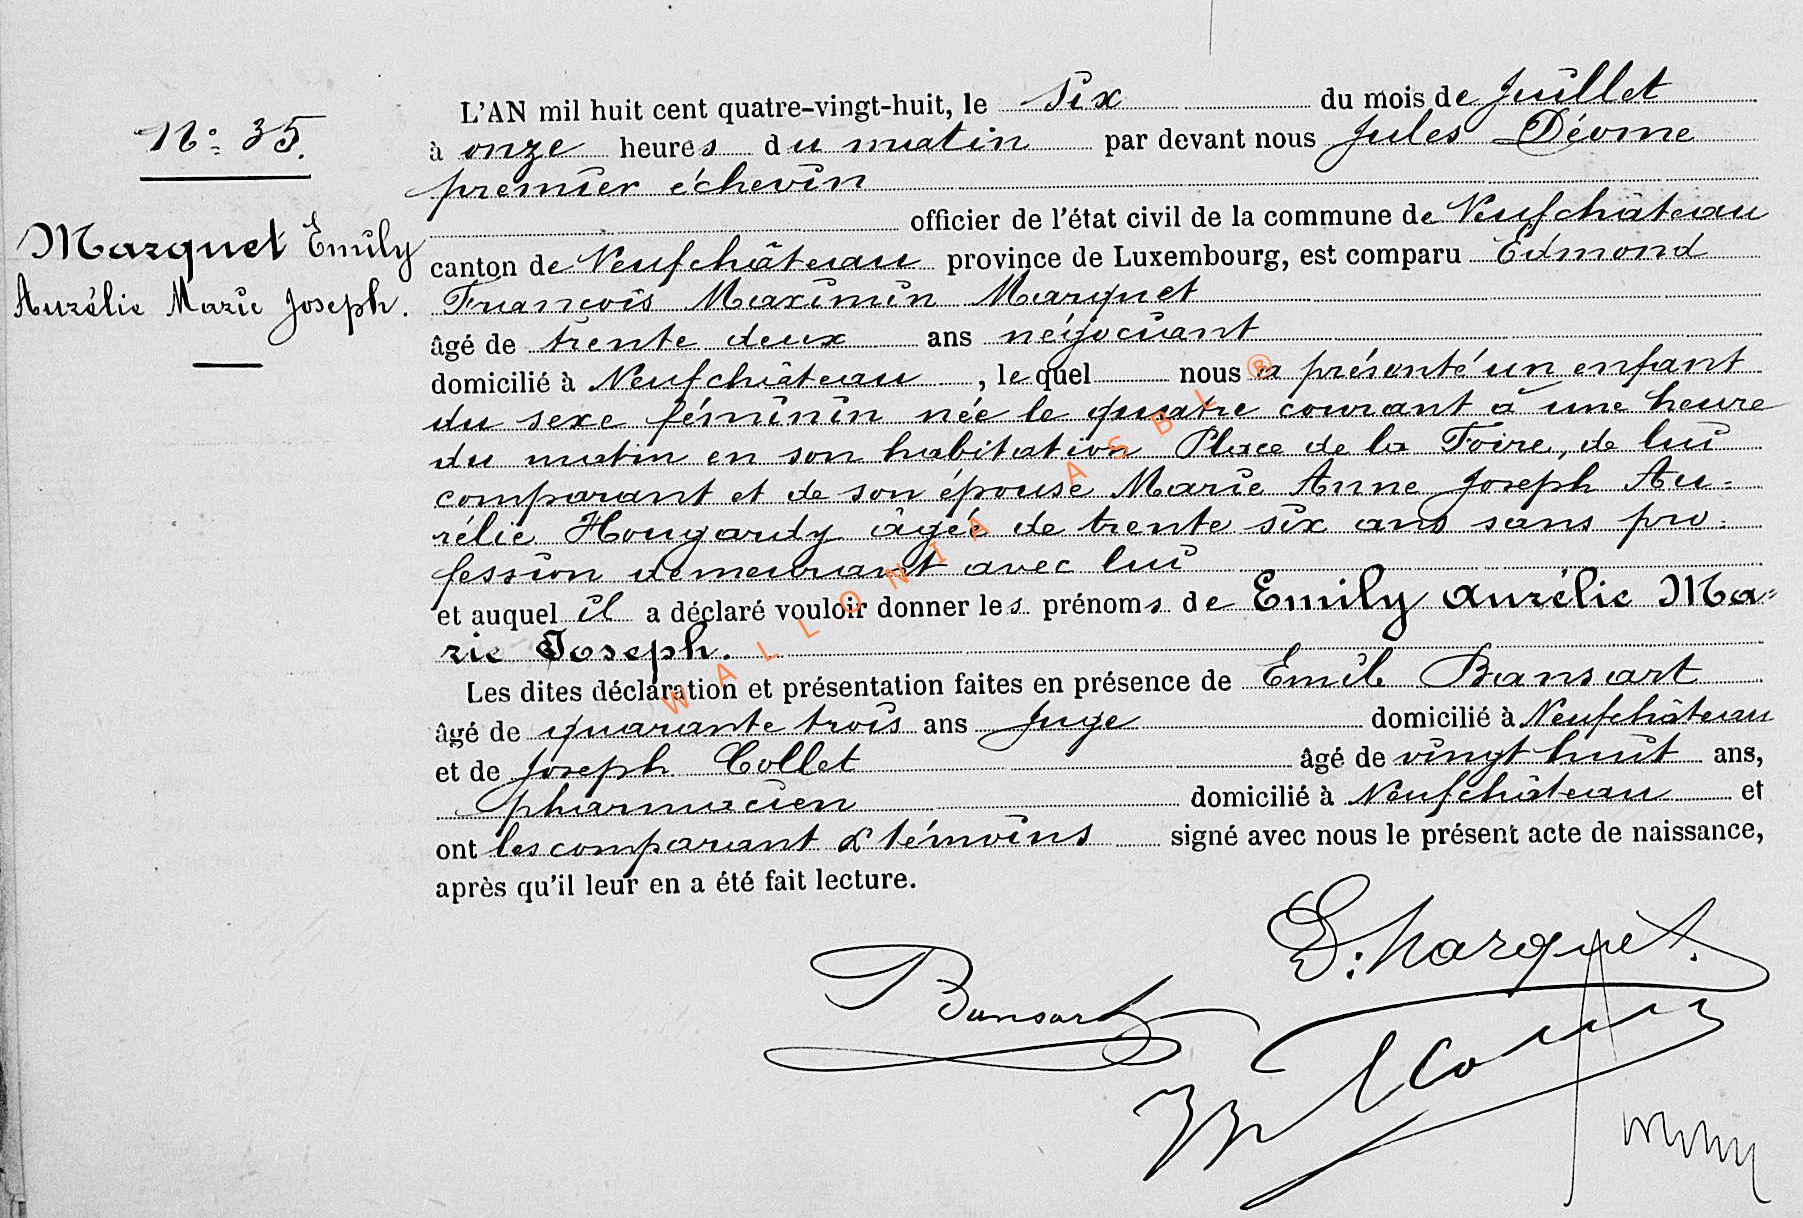 N° 35.
Marquet Emily
Aurélie Marie Joseph.
L'AN mil huit cent quatre-vingt-huit, le six du mois de Juillet
à onze heures du matin par devant nous Jules Déome
premier échevin
officier de l'état civil de la commune de Neufchâteau
canton de Neufchâteau province de Luxembourg, est comparu Edmond
François Maximin Marquet
âgé de trente deux ans négociant
domicilié à Neufchâteau, lequel nous a présenté un enfant
du sexe féminin née le quatre courant à une heure
du matin en son habitation Place de la Foire, de lui
comparant et de son épouse Marie Anne Joseph Au=
rélie Hougardy âgée de trente six ans sans pro=
fession demeurant avec lui
et auquel il a déclaré vouloir donner les prénoms de Emily Aurélie Ma=
rie Joseph.
Les dites déclaration et présentation faites en présence de Emile Bansart
âgé de quarante trois ans Juge domicilié à Neufchâteau
et de Joseph Collet âgé de vingt huit ans,
pharmacien domicilié à Neufchâteau et
ont les comparant & témoins signé avec nous le présent acte de naissance,
après qu'il leur en a été fait lecture.
E. Marquet.
Bansart
WALLONIA ASBL ®